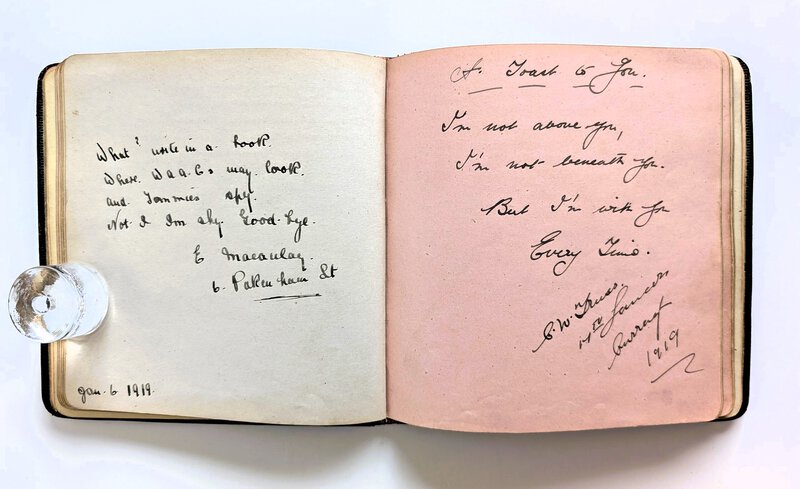 What? write in a book.
Where Waacs may look.
and Tommies spy.
Not I Im shy Good-bye.
E Macaulay.
6. Pakenham St
Jan. 6 1919.
A Toast to You.
I'm not above you,
I'm not beneath you.
But I'm with you
Every Time.
C. W. Truss.
Lancers
Curragh
1919